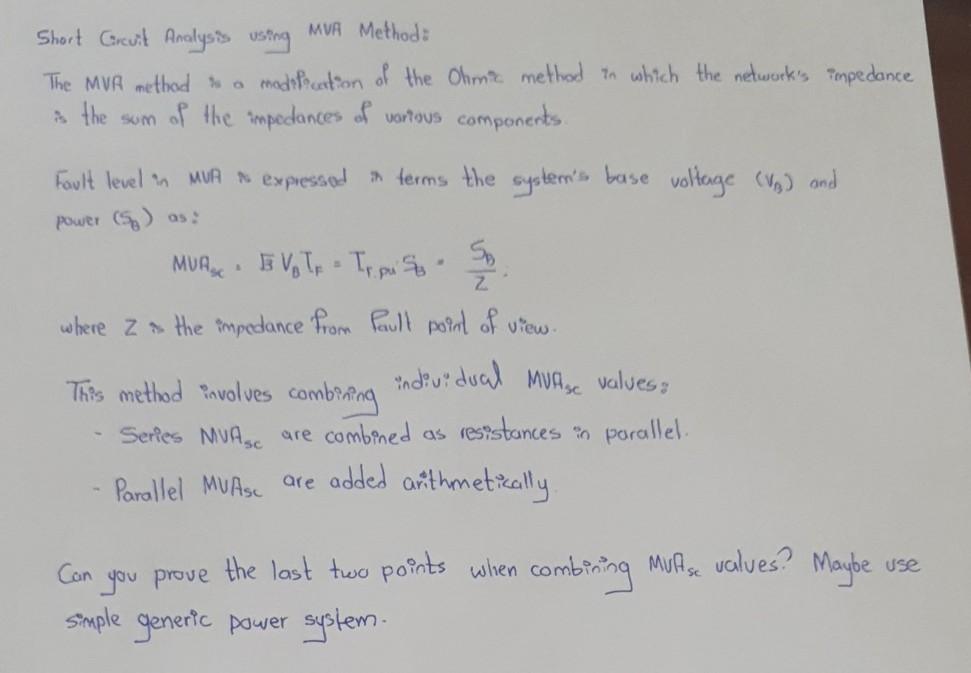 Short Circuit Analysis using MVA Method:
The MVA method is a modification of the Ohmic method in which the network's impedance
is the sum of the impedances of various components.
Fault level in MVA is expressed in terms the system's base voltage (V_B) and
power (S_B) as:
MVA_sc = √3 V_B I_F = I_F,pu S_B = S_B / Z ;
where Z is the impedance from fault point of view.
This method involves combining individual MVA_sc values:
- Series MVA_sc are combined as resistances in parallel.
- Parallel MVA_sc are added arithmetically
Can you prove the last two points when combining MVA_sc values? Maybe use
simple generic power system.